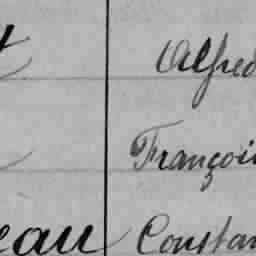 Alfred
Françoi
eau Constan